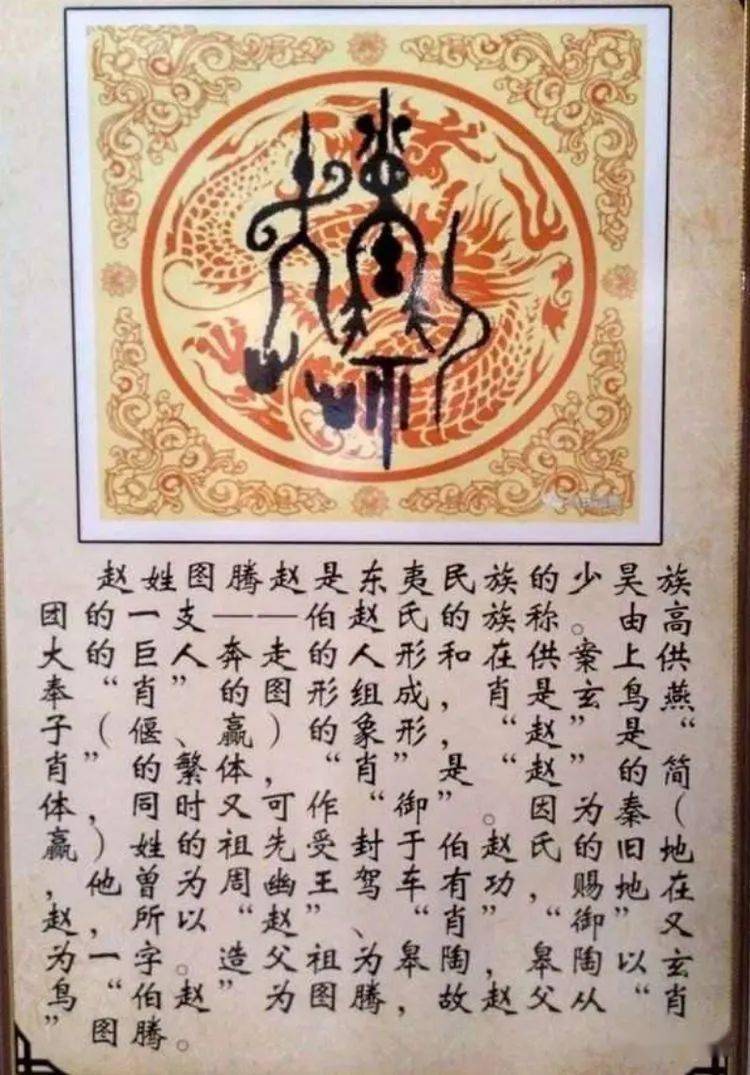 赵姓图腾赵是东夷民族的少昊族
团的一支——伯赵氏的族称。由高
大的巨人奔走的人形和在供案上供
奉“肖”的图形组成,肖是玄鸟燕
子(肖偃、赢)的象形,“赵”是“
肖”的繁体,“肖”是“赵”的简
体,同时又可作“御”。因为秦(
赢)姓的祖先受封于伯赵氏的旧地
,他曾为周幽王驾车有功,赐地在
赵,所以“赵”、“肖”“御”又
为一字。造父祖为皋陶,皋陶以玄
鸟“伯赵”为图腾,故赵父从“肖
”图腾。